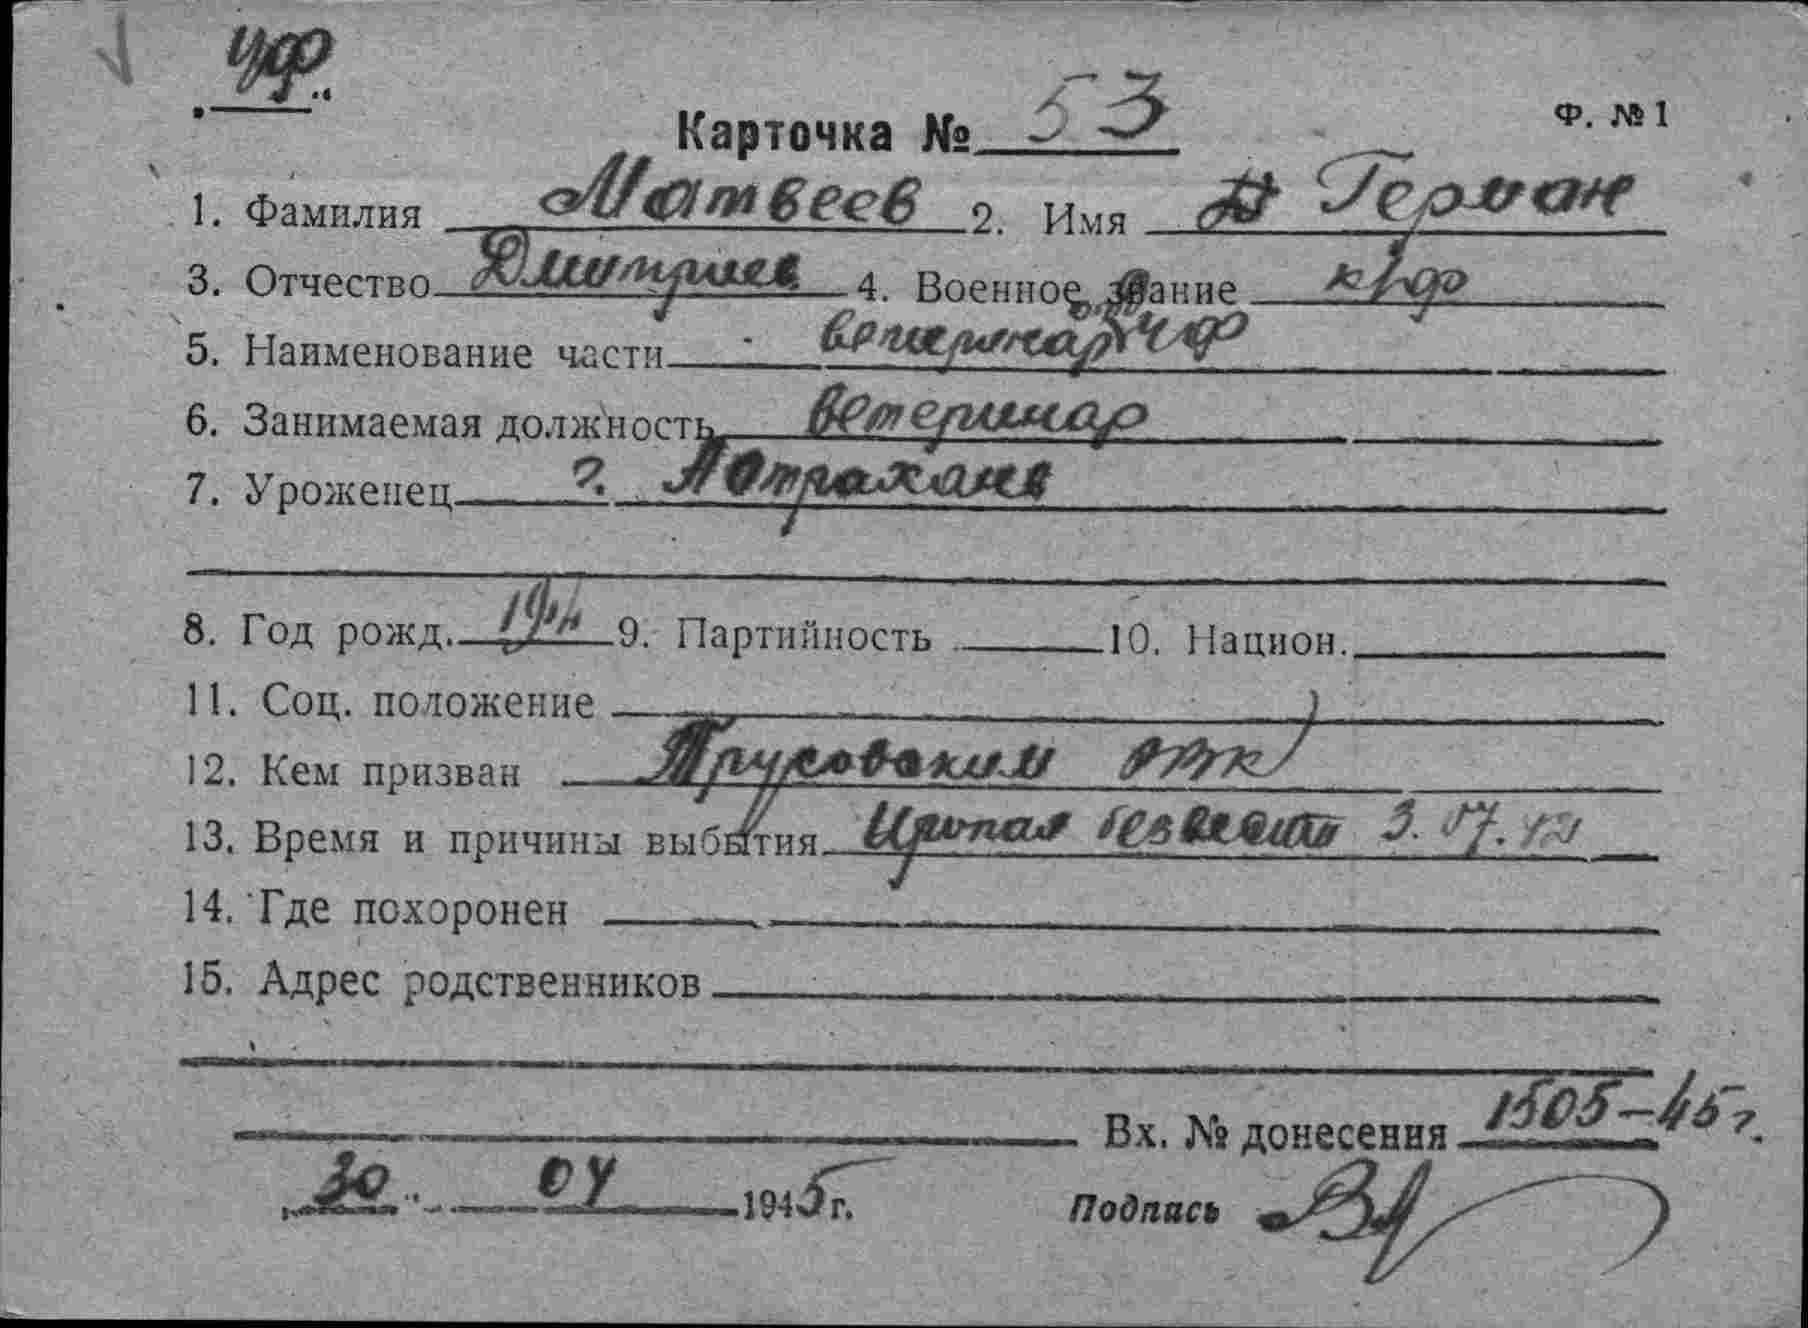 Карточка № 53 Ф. № 1
1. Фамилия Матвеев 2. Имя Герман
3. Отчество Дмитриев 4. Военное звание
5. Наименование части
6. Занимаемая должность Ветеринар
7. Уроженец ?.
8. Год рожд. 9. Партийность 10. Национ.
11. Соц. положение
12. Кем призван
13. Время и причины выбытия
14. Где похоронен
15. Адрес родственников
Вх. № донесения 1505-45 г.
30 04 1945 г. Подпись